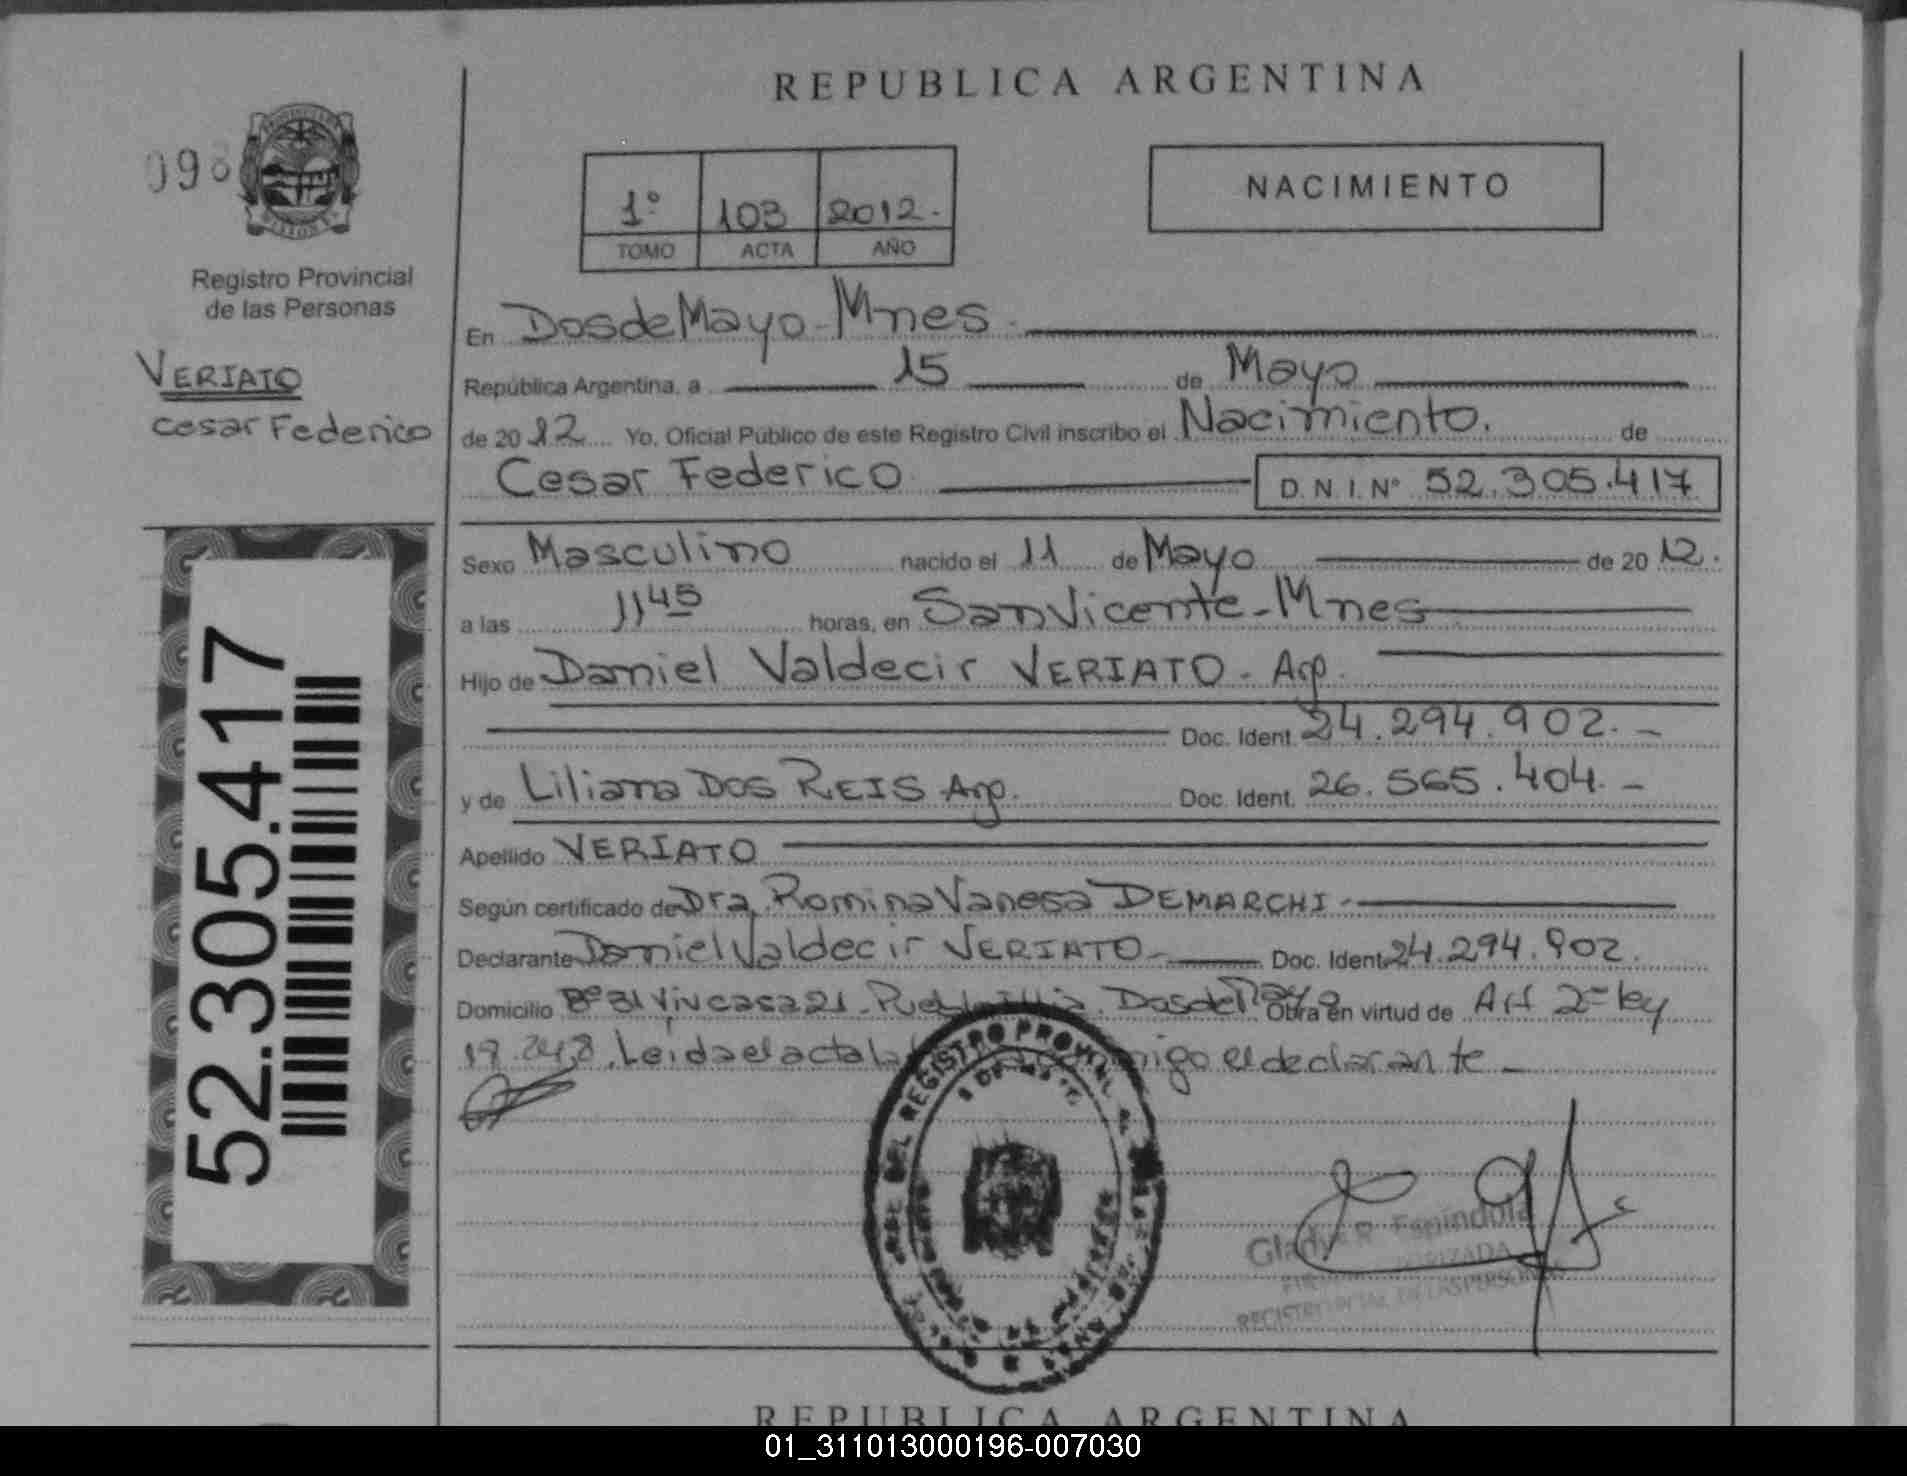 REPUBLICA ARGENTINA
098
1º 103 2012.
TOMO ACTA AÑO
NACIMIENTO
Registro Provincial
de las Personas
VERIATO
cesar Federico
52.305.417
En Dos de Mayo - Mnes.
República Argentina, a 15 de Mayo
de 2012 Yo, Oficial Público de este Registro Civil inscribo el Nacimiento. de
Cesar Federico D.N.I.Nº 52.305.417
Sexo Masculino nacido el 11 de Mayo de 2012.
a las 11 45 horas, en San Vicente - Mnes
Hijo de Daniel Valdecir VERIATO - Arg.
Doc. Ident. 24.294.902.-
y de Liliana DOS REIS Arg. Doc. Ident. 26.565.404.-
Apellido VERIATO
Según certificado de Dra. Romina Vanesa DEMARCHI -
Declarante Daniel Valdecir VERIATO - Doc. Ident. 24.294.902.
Domicilio Bº 31 Viv casa 21 - Dos de Mayo Obra en virtud de Art 2º ley
19.248. Leida el acta la el declarante -
REGISTRO PROVINCIAL
Gladys R. Espindola
AUTORIZADA
REGISTRO PROVINCIAL DE LAS PERSONAS
REPUBLICA ARGENTINA
01_311013000196-007030